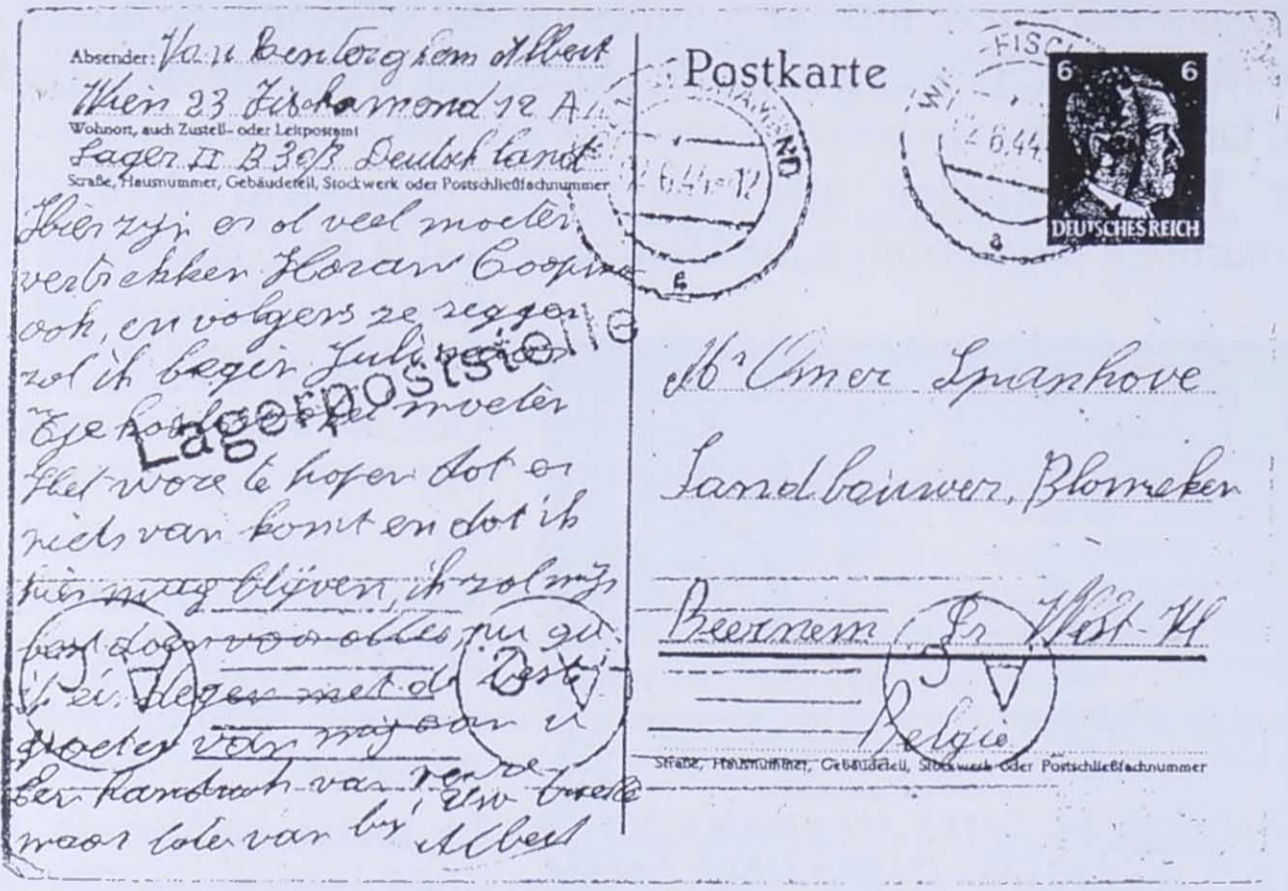 Absender: Van Benterghem Albert
Wien 23 Fischamend 12 A
Wohnort, auch Zustell- oder Leitpostamt
Lager II B 30/3 Deutschland
Straße, Hausnummer, Gebäudeteil, Stockwerk oder Postschließfachnummer
Hier zijn er al veel moeten
vertrekken
ook, en volgens ze zeggen
zal ik begin Juli
moeten
Het ware te hopen dat er
niets van komt en dat ik
hier mag blijven, ik zal mijn
best doen voor alles, nu ga
ik eindegen met de beste
groeten van mij aan u
Een handruk van
maar late van bij Albert
Lagerpoststelle
Postkarte
6 6
DEUTSCHES REICH
6.44-12
6.44
Mr Omer Spanhove
Landbouwer, Blomeken
Beernem Pr West-Vl
België
Straße, Hausnummer, Gebäudeteil, Stockwerk oder Postschließfachnummer